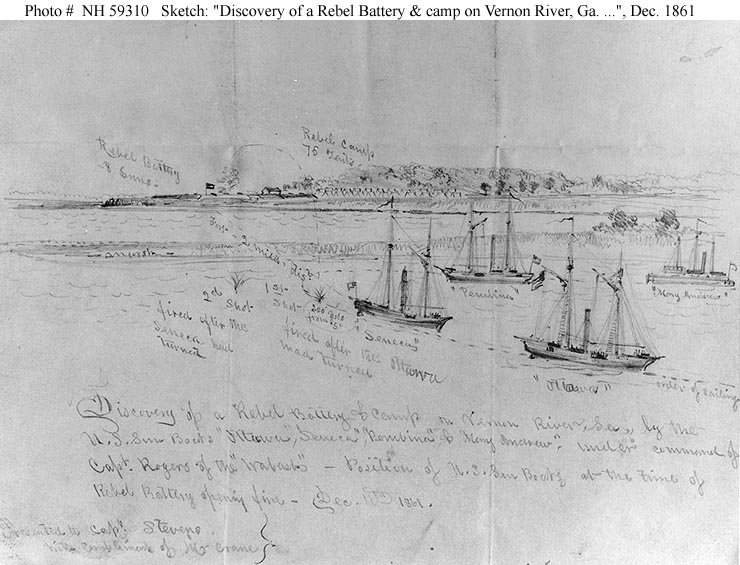 Photo # NH 59310 Sketch: "Discovery of a Rebel Battery & camp on Vernon River, Ga. ...", Dec. 1861
Rebel Camp
75 Tents.
Rebel Battery
8 Guns.
Fort - 2 miles dist.
- marsh -
2d Shot
fired after the
Seneca had
turned
1st
Shot
200 yds
from "S"
fired after the Ottawa
had turned
"Seneca"
"Pembina"
"Henry Andrew"
"Ottawa"
order of sailing
Discovery of a Rebel Battery & Camp on Vernon River, Ga, by the
U.S. Gun Boats "Ottawa", "Seneca", "Pembina", & "Henry Andrew", under command of
Capt. Rogers of the "Wabash" - Position of U.S. Gun Boats at the time of
Rebel Battery opening fire - Dec. 1861.
Presented to Capt. Stevens.
with compliments of Mr Crane